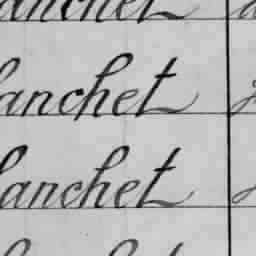 anchet
lanchet
lanchet